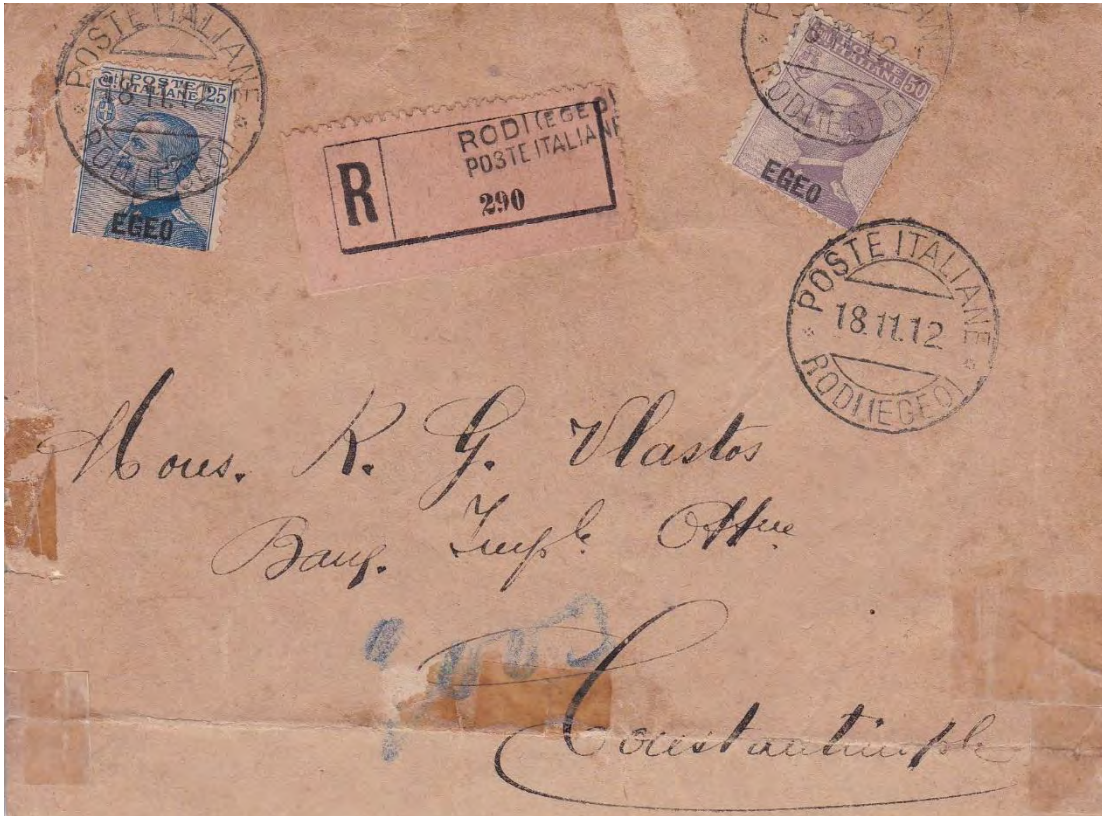 POSTE ITALIANE
18.11.12
RODI (EGEO)
POSTE ITALIANE 25
EGEO
RODI (EGEO)
POSTE ITALIANE
R
290
18.11.12
RODI (EGEO)
POSTE ITALIANE 50
EGEO
POSTE ITALIANE
18.11.12
RODI (EGEO)
Mons. K. G. Vlastos
Banq. Imple Ottne
Constantinople